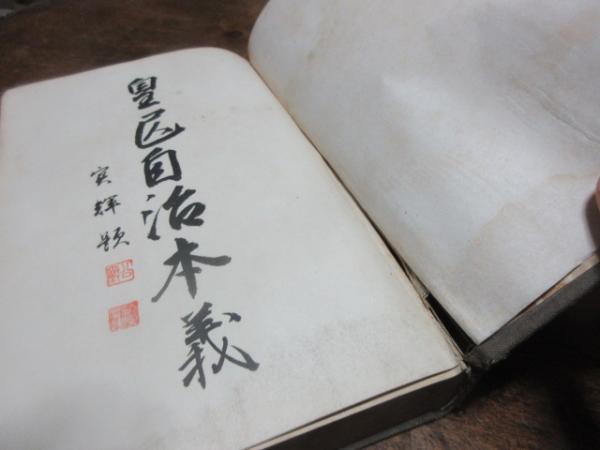 皇民自治本義
実輝題